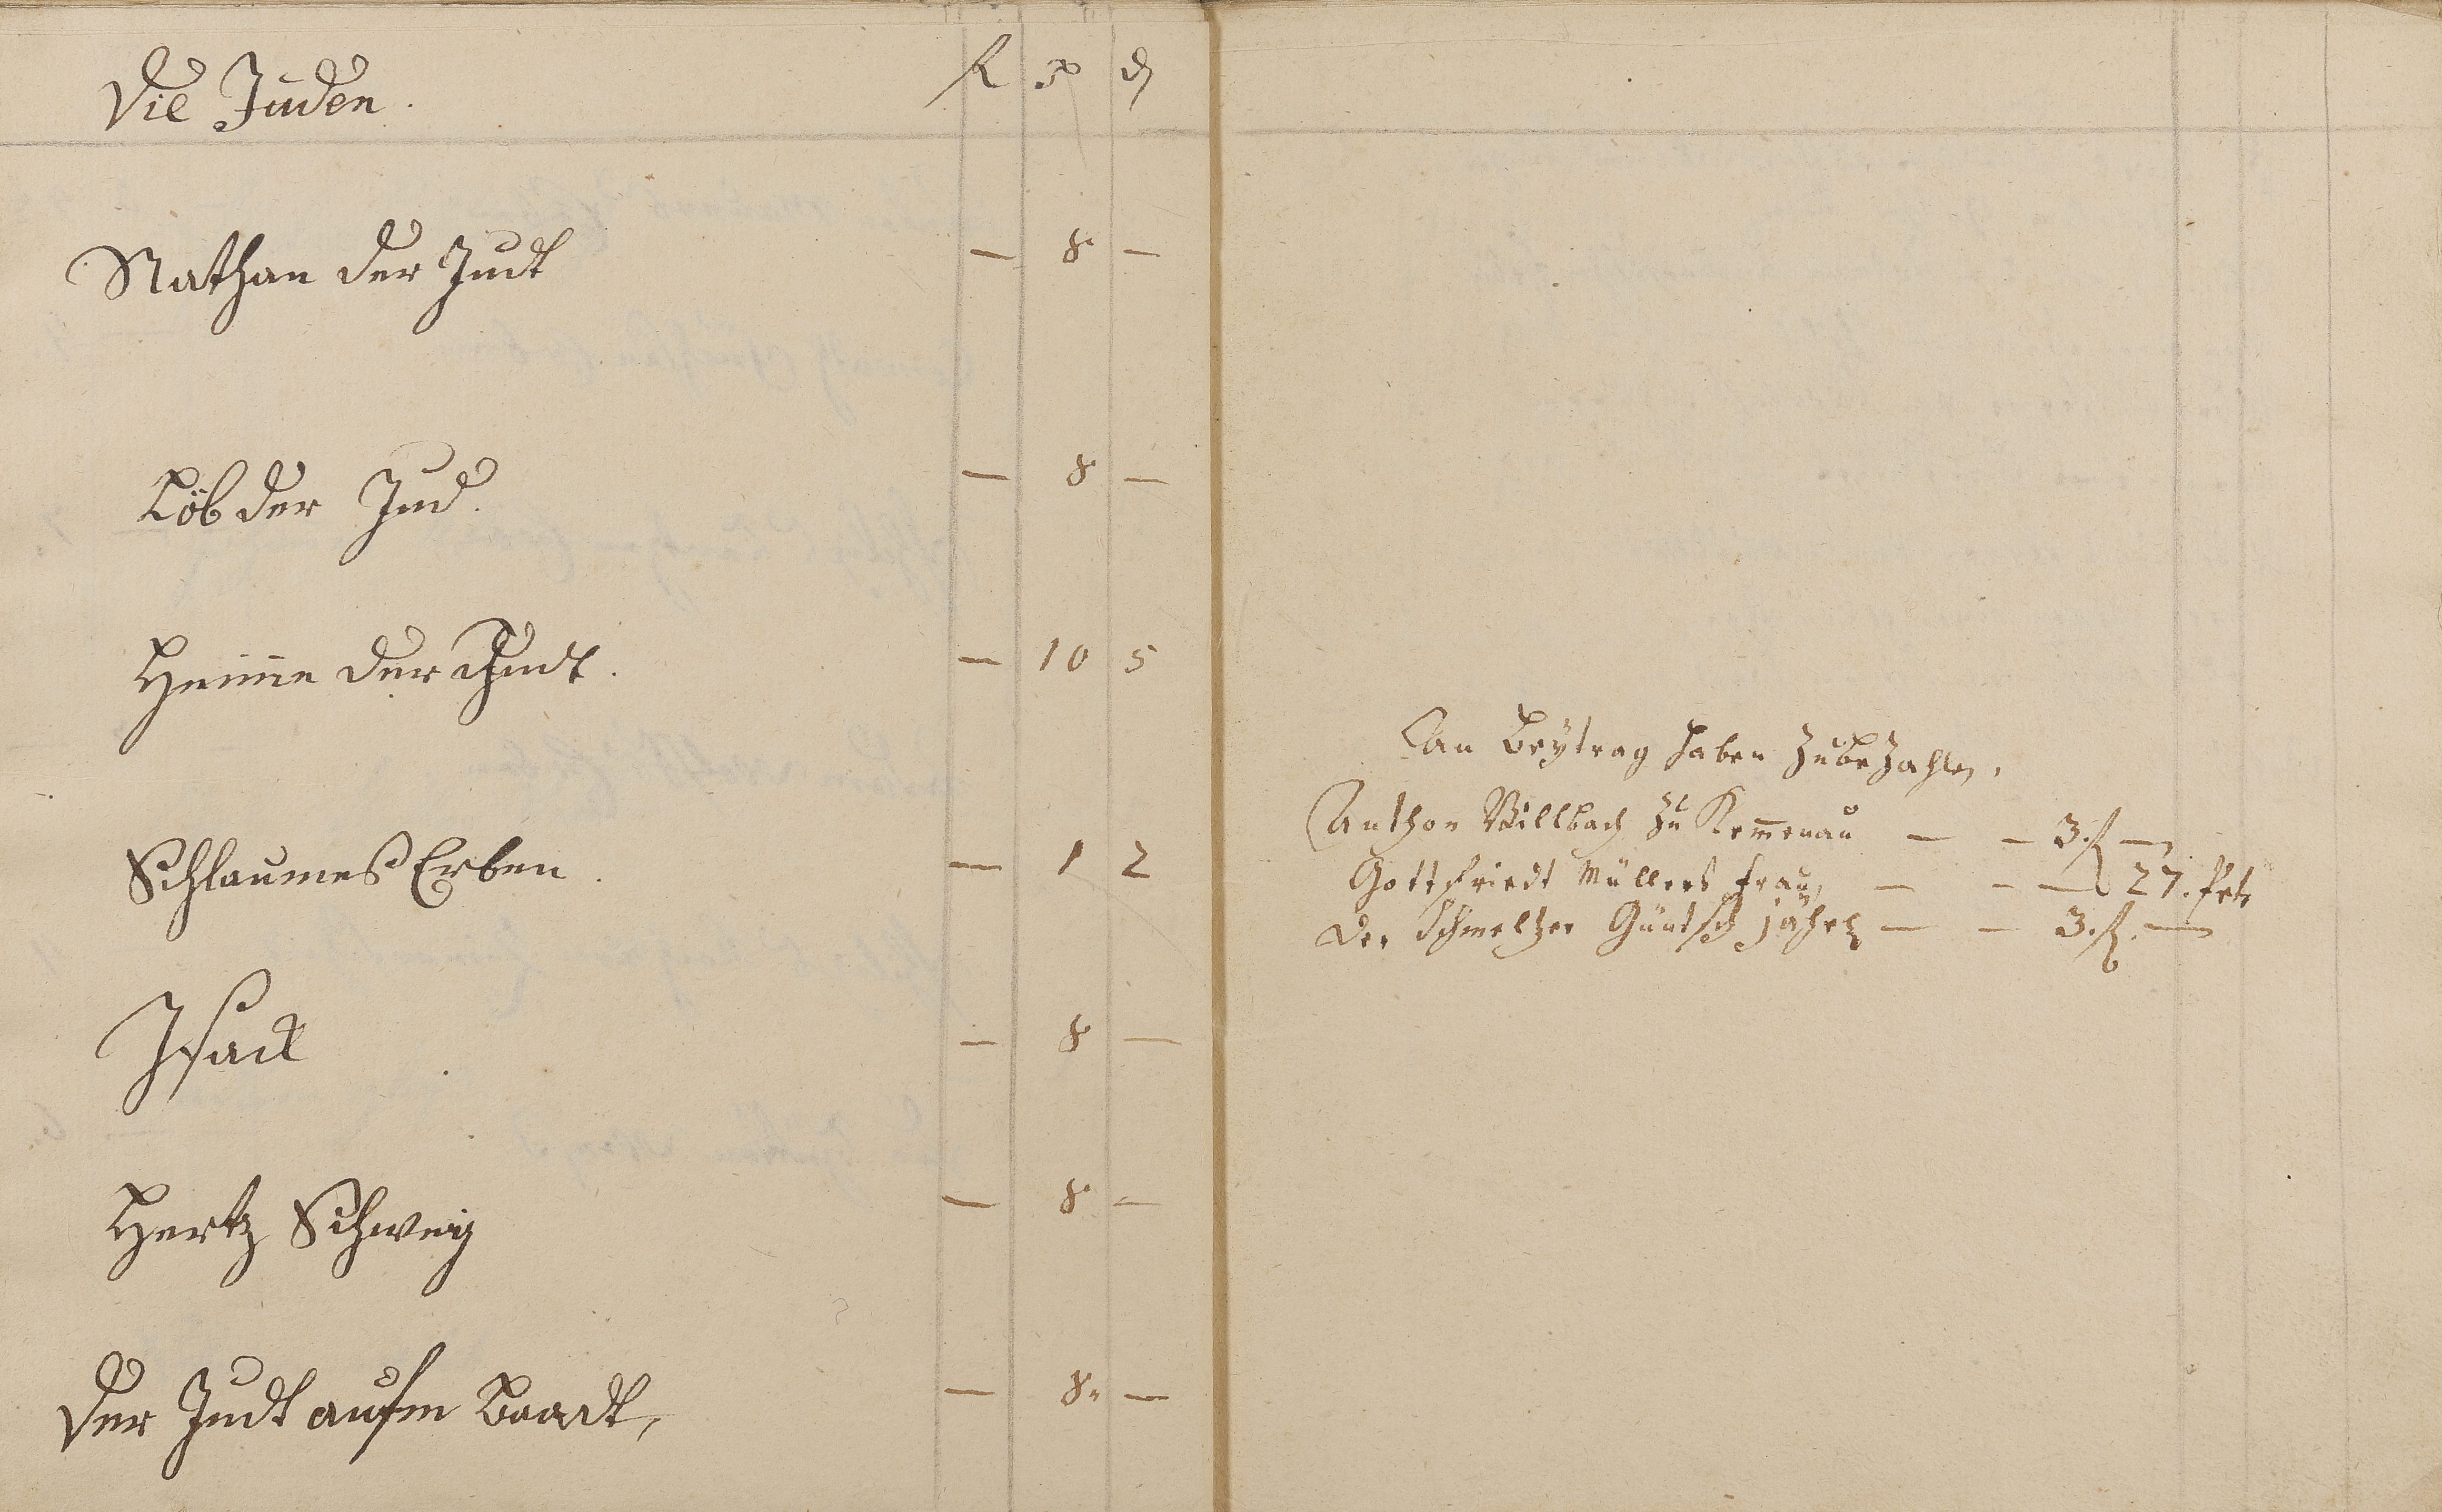 Die Juden. fl xr d
Nathan der Judt — 8 —
Löb der Jud. — 8 —
Heime der Judt. — 10 5
Schlaumes Erben. — 1 2
Isack — 8 —
Hertz Schweig — 8 —
Der Judt aufm Baadt, — 8. —
An Beytrag haben zu bezahlen,
Anthon Willbach zu Kem̅enau — — 3. fl —
Gottfriedt Müllers Frau, — — — 27. Petr
Der Schmeltzer Güntsch jährl — — 3. fl. —